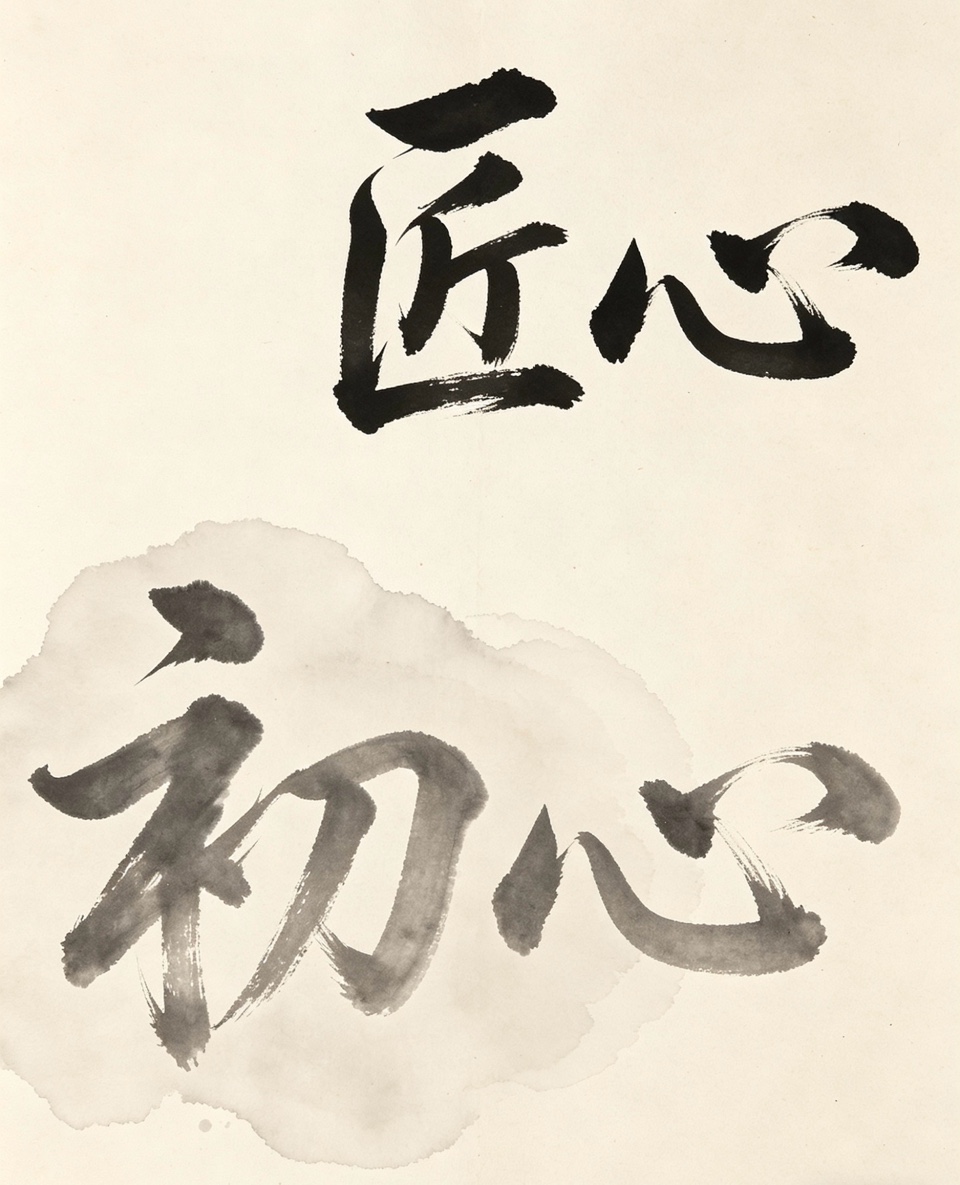 匠心
初心